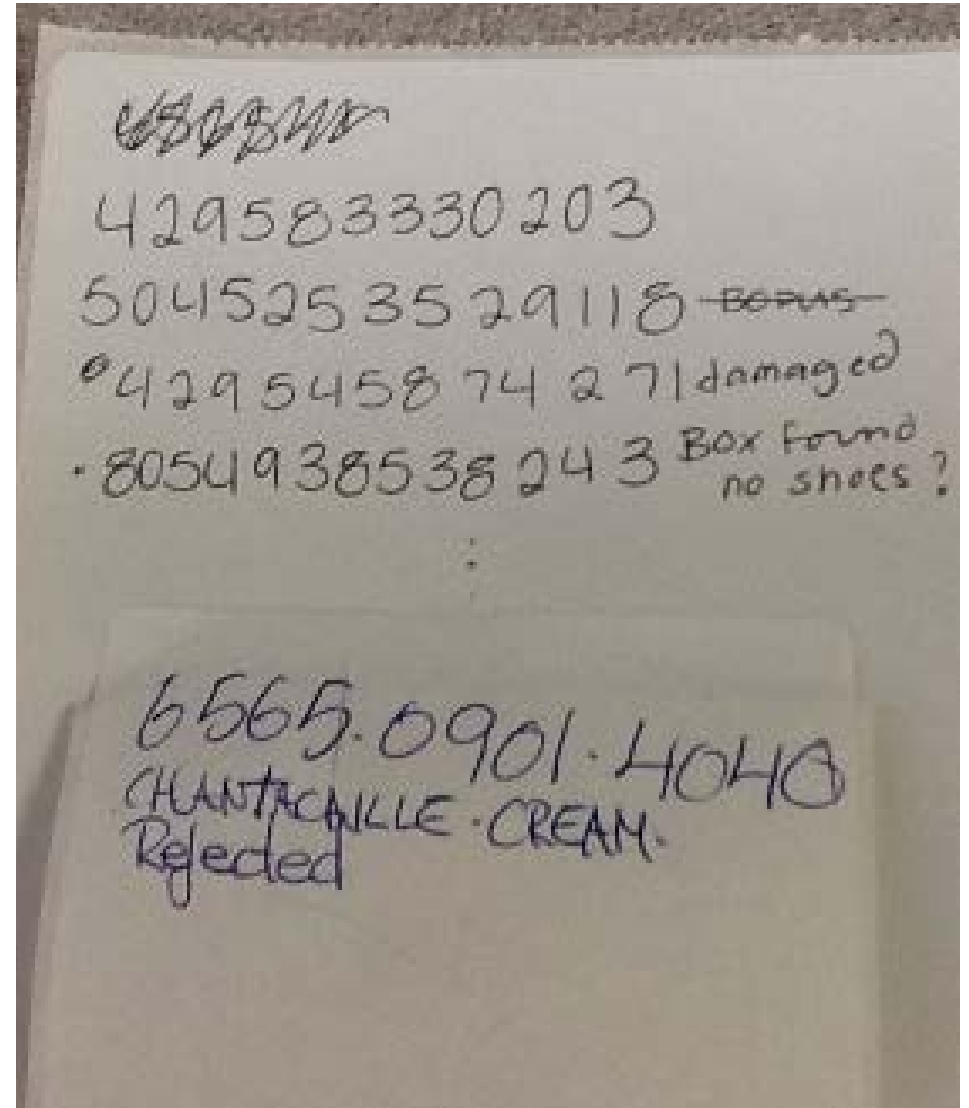 429583330203
5045253529118
429545874271 damaged
8054938538243 Box found
no shoes?
6565.0901.4040
CHANTACAILLE.CREAM.
Rejected